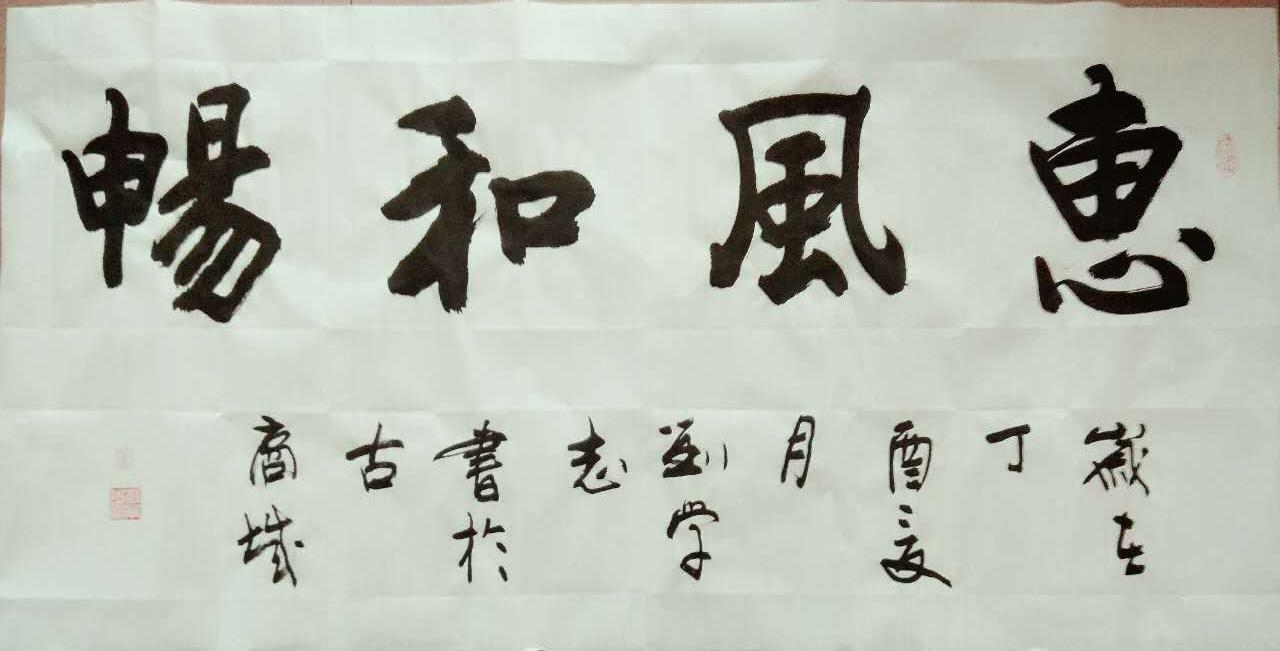 惠風和暢
歲在
丁
酉夏
月
劉学
志
書於
古
商城